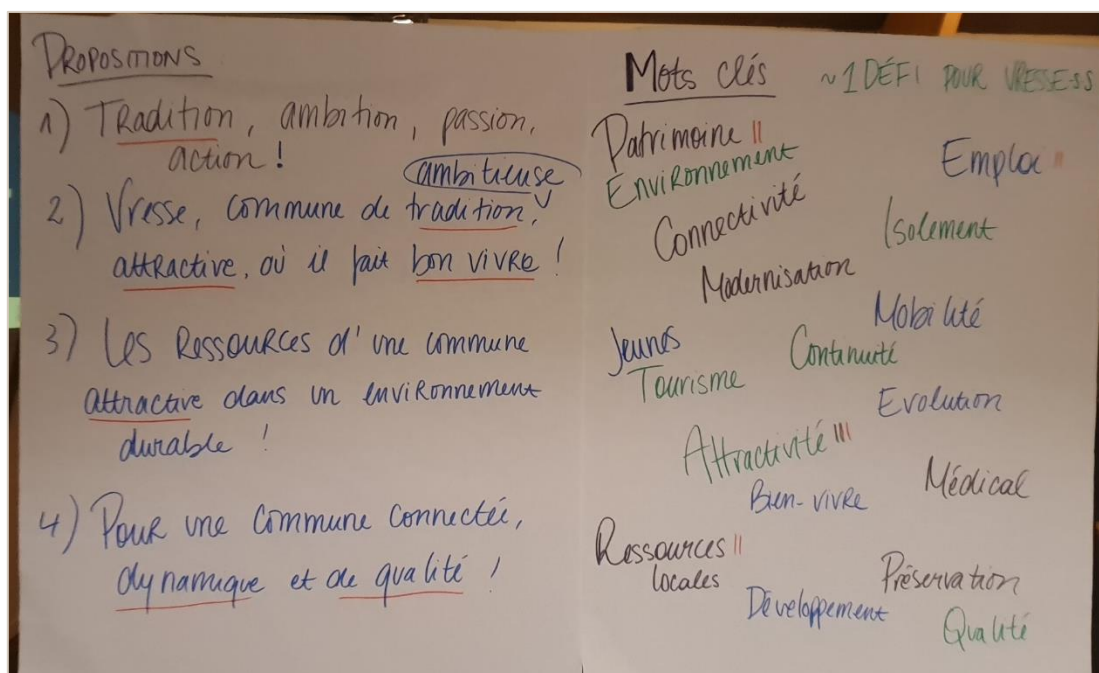 PROPOSITIONS
1) Tradition, ambition, passion,
action !
ambitieuse
2) Vresse, commune de tradition, V
attractive, où il fait bon vivre !
3) Les Ressources d'une commune
attractive dans un environnement
durable !
4) Pour une commune connectée,
dynamique et de qualité !
Mots clés ~1 DÉFI POUR VRESSE-SS
Patrimoine II
Emploi II
Environnement
Connectivité
Isolement
Modernisation
Mobilité
Jeunes
Continuité
Tourisme
Evolution
Attractivité III
Médical
Bien-vivre
Ressources II
locales
Préservation
Développement
Qualité